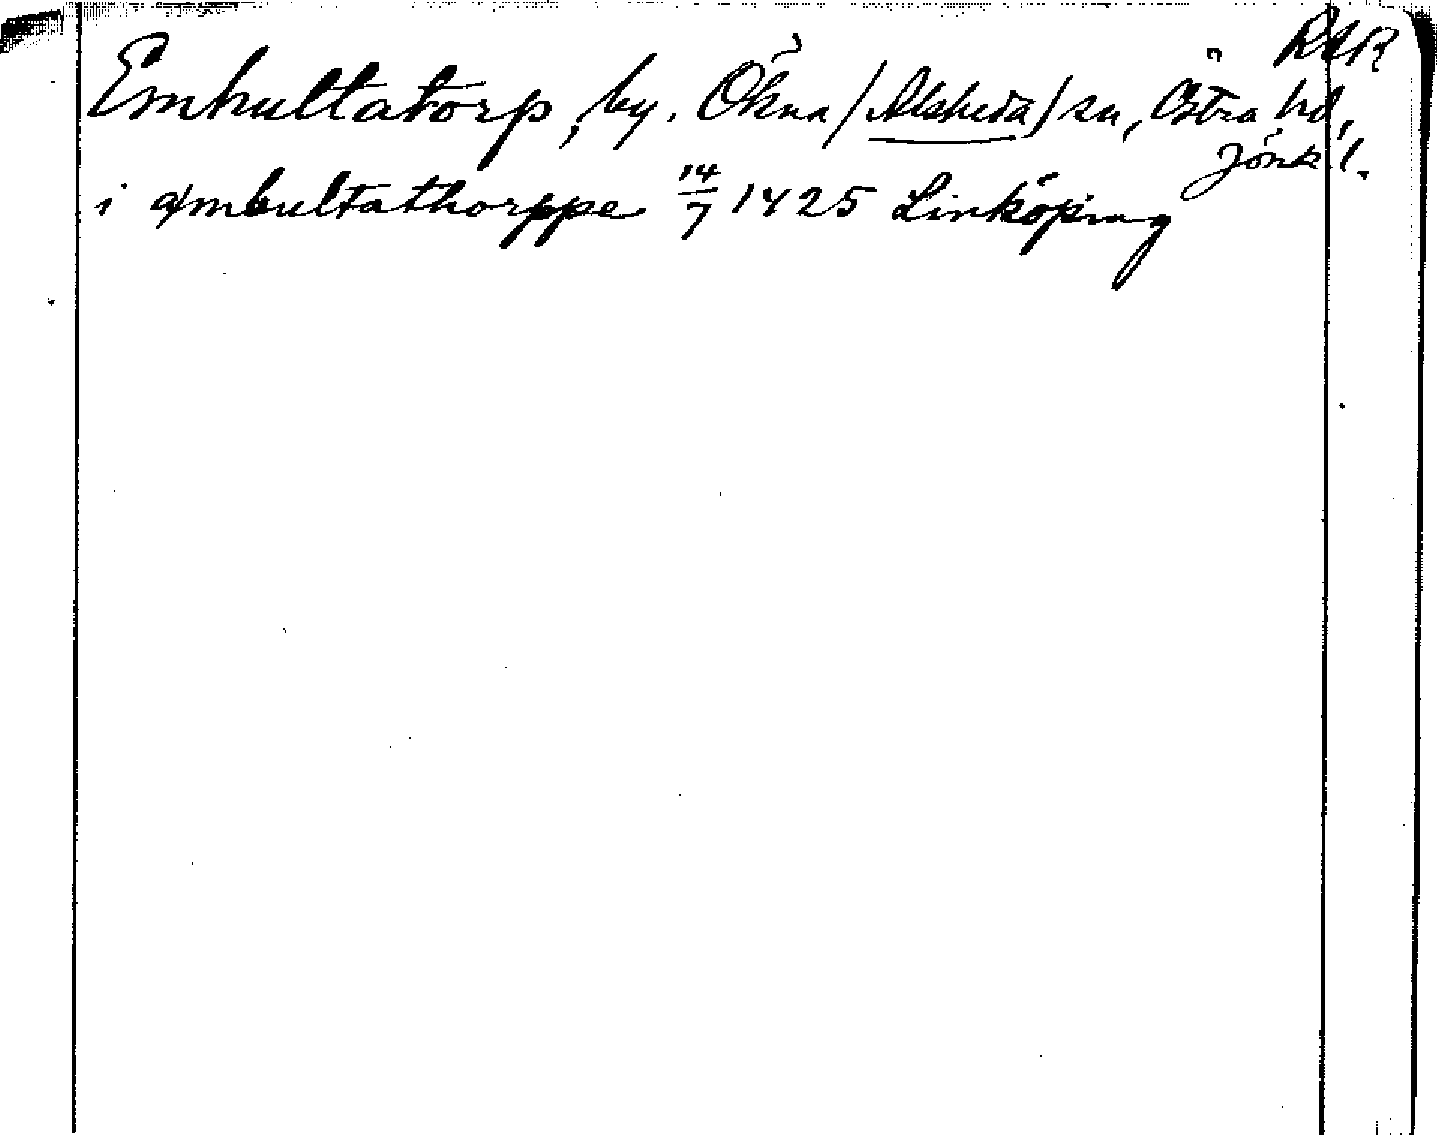 RAR
Emhultatorp, by. Ökna (Alsheda) sn, Östra hd,
Jönk l.
i æmbultathorppe 14/7 1425 Linköping